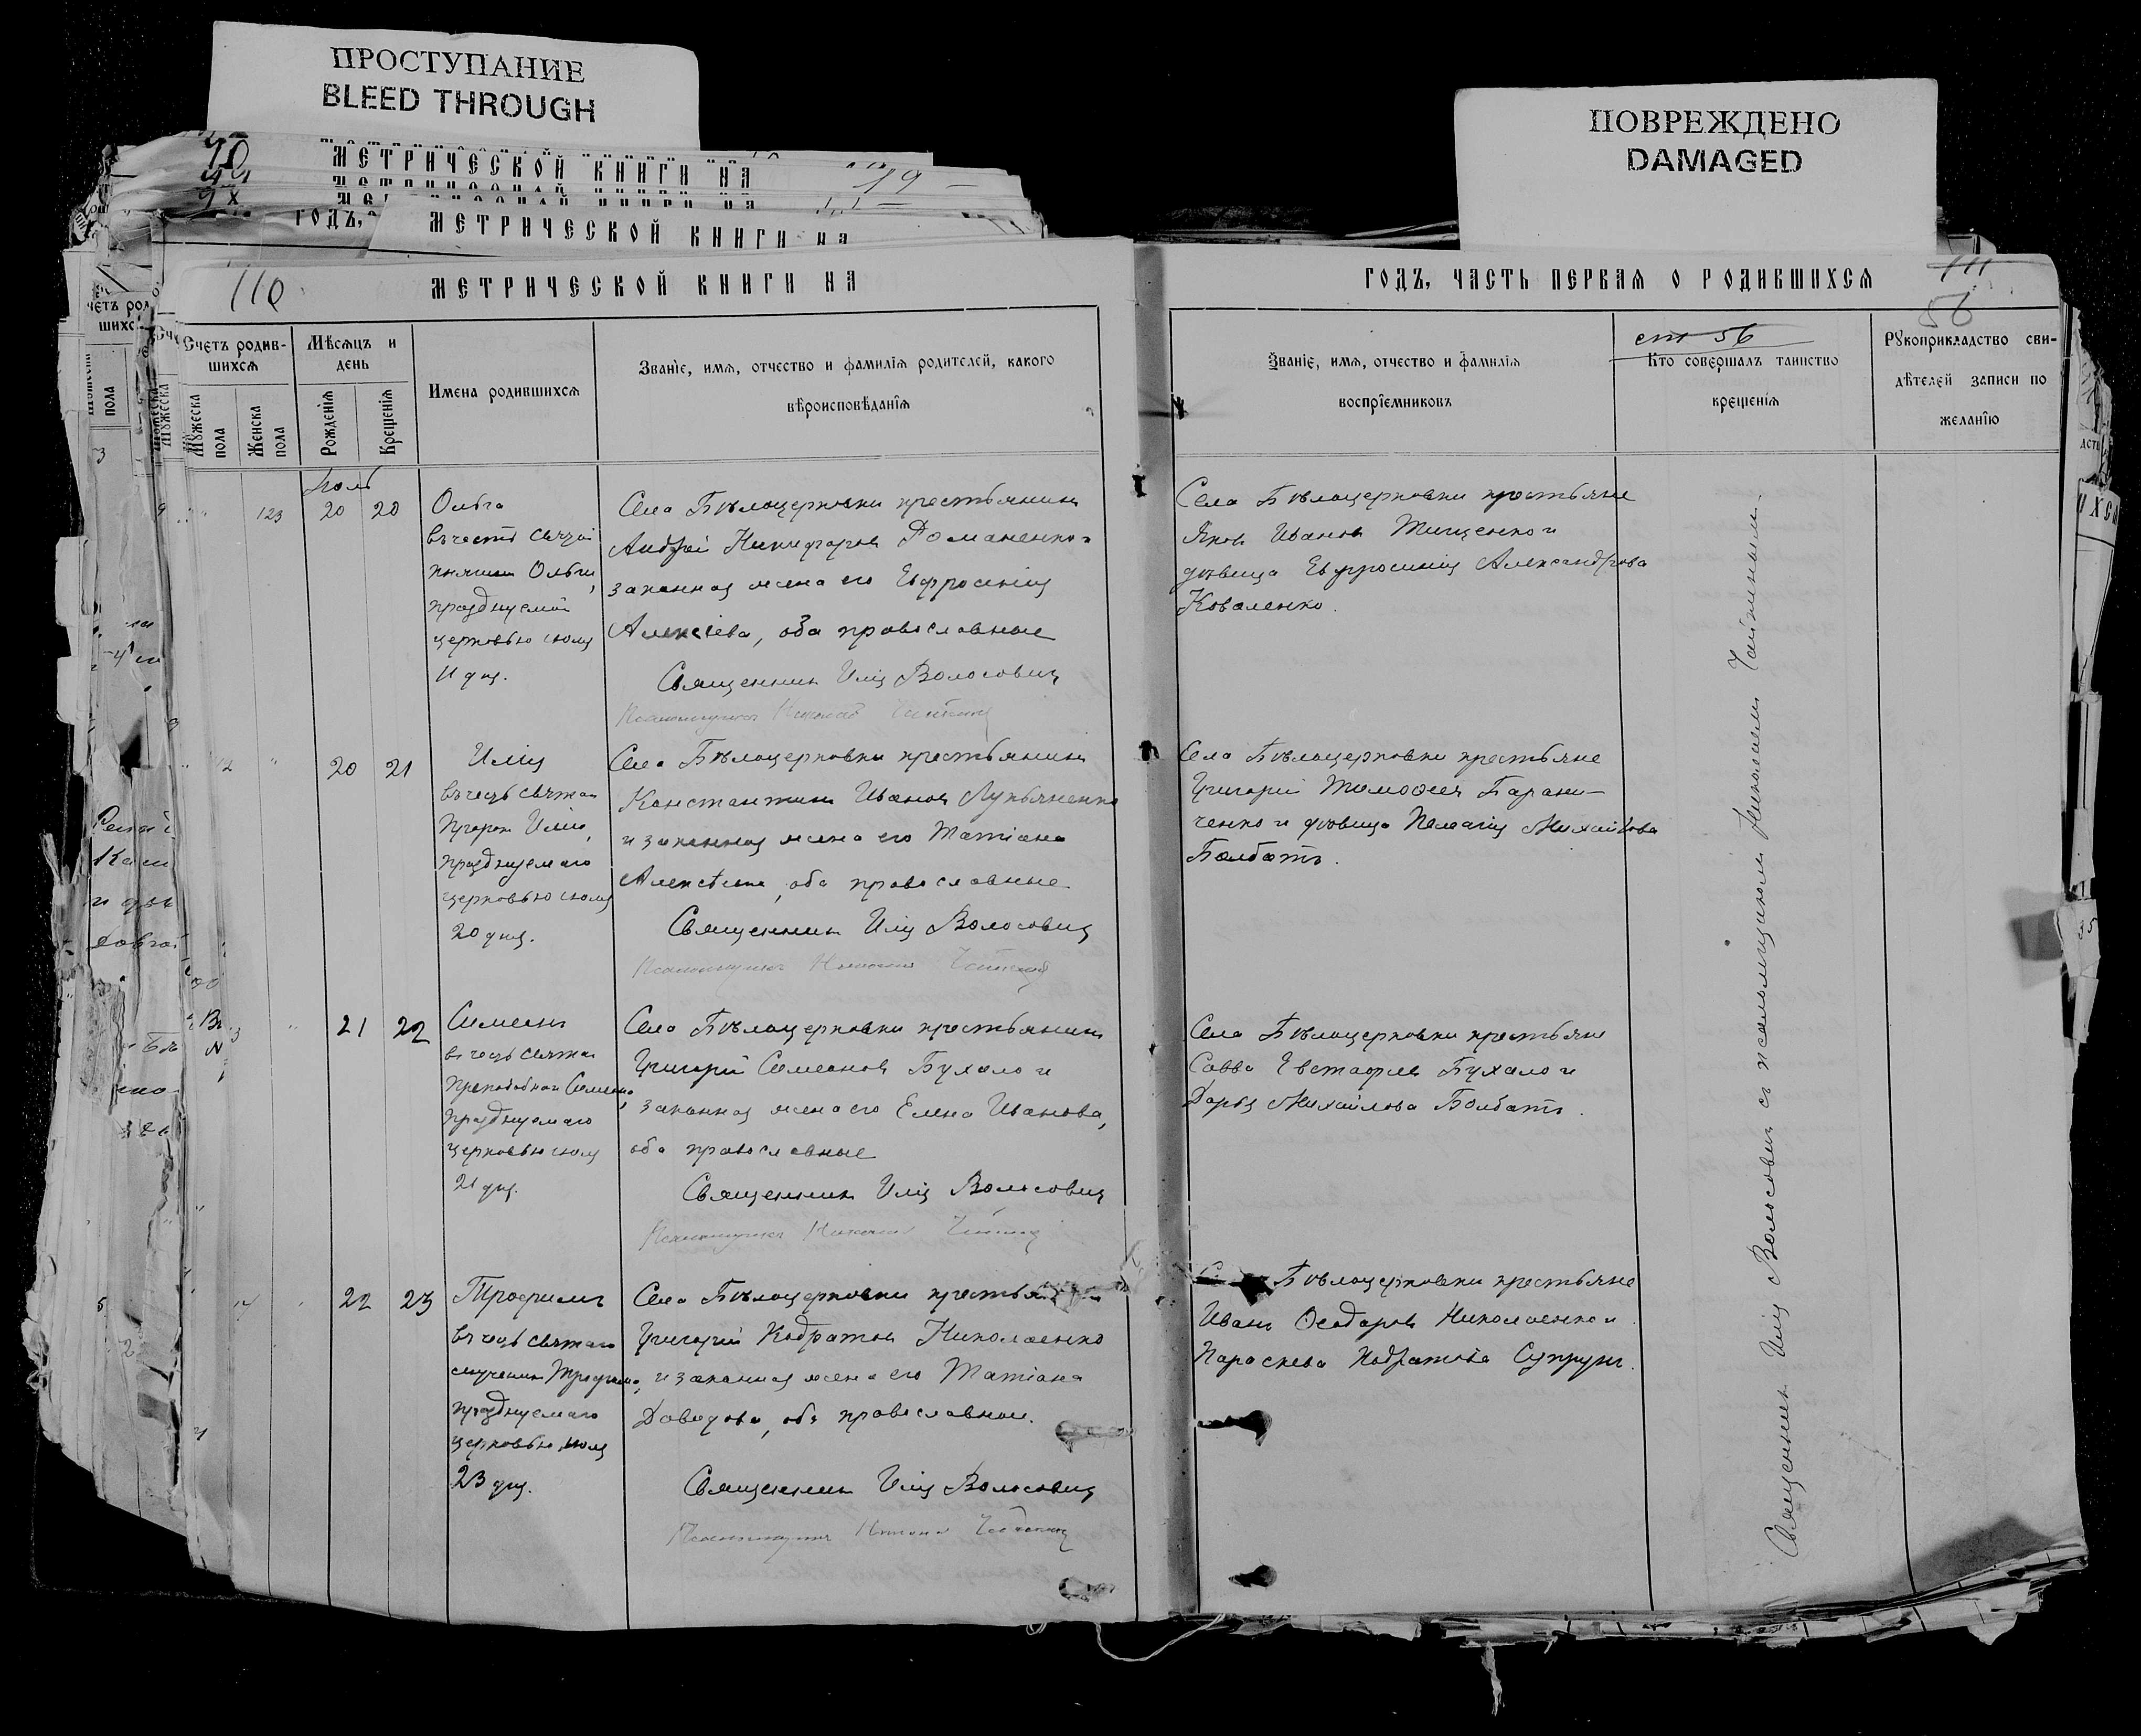 ПРОСТУПАНИЕ
BLEED THROUGH
ПОВРЕЖДЕНО
DAMAGED
МЕТРИЧЕСКОЙ КНИГИ НА
19
ГОДЪ,
МЕТРИЧЕСКОЙ КНИГИ НА
110
МЕТРИЧЕСКОЙ КНИГИ НА
ГОДЪ, ЧАСТЬ ПЕРВАЯ О РОДИВШИХСЯ
111
56
Счетъ родив-
шихся
Мужеска
пола
Женска
пола
Мѣсяцъ и
день
Рожденія
Крещенія
Имена родившихся
Званіе, имя, отчество и фамилія родителей, какого
вѣроисповѣданія
Званіе, имя, отчество и фамилія
воспріемниковъ
ст 56
Кто совершалъ таинство
крещенія
Рукоприкладство сви-
дѣтелей записи по
желанію
Іюль
123
20
20
Ольга
въ честь святой
княгини Ольги,
празднуемой
церковью іюля
11 дня.
Села Бѣлоцерковки крестьянинъ
Андрей Никифоровъ Романенко и
законная жена его Евфросинія
Алексіева, оба православные
Священникъ Илія Волосовичъ
Псаломщикъ Николай
Села Бѣлоцерковки крестьяне
Яковъ Ивановъ Тищенко и
дѣвица Евфросинія Александрова
Коваленко.
20
21
Илія
въ честь святаго
Пророка Иліи,
празднуемаго
церковью іюля
20 дня.
Села Бѣлоцерковки крестьянинъ
Константинъ Ивановъ Лукьяненко
и законная жена его Татіана
Алексѣева, оба православные
Священникъ Илія Волосовичъ
Псаломщикъ Николай
Села Бѣлоцерковки крестьяне
Григорій Тимофеевъ Барани-
ченко и дѣвица Пелагія Михайлова
Балбатъ.
21
22
Симеонъ
въ честь святаго
Преподобнаго Симеона,
празднуемаго
церковью іюля
21 дня.
Села Бѣлоцерковки крестьянинъ
Григорій Симеоновъ Бухало и
законная жена его Елена Иванова,
оба православные
Священникъ Илія Волосовичъ
Псаломщикъ Николай
Села Бѣлоцерковки крестьяне
Савва Евстафіевъ Бухало и
Дарья Михайлова Балбатъ.
22
23
Трофимъ
въ честь святаго
мученика Трофима,
празднуемаго
церковью іюля
23 дня.
Села Бѣлоцерковки
Григорій Кодратовъ Николаенко
и законная жена его Татіана
Давидова, оба православные.
Священникъ Илія Волосовичъ
Псаломщикъ Николай
Бѣлоцерковки крестьяне
Иванъ Ѳеодоровъ Николаенко и
Параскева Кодратова Супрунъ.
Священникъ Илія Волосовичъ съ псаломщикомъ Николаемъ